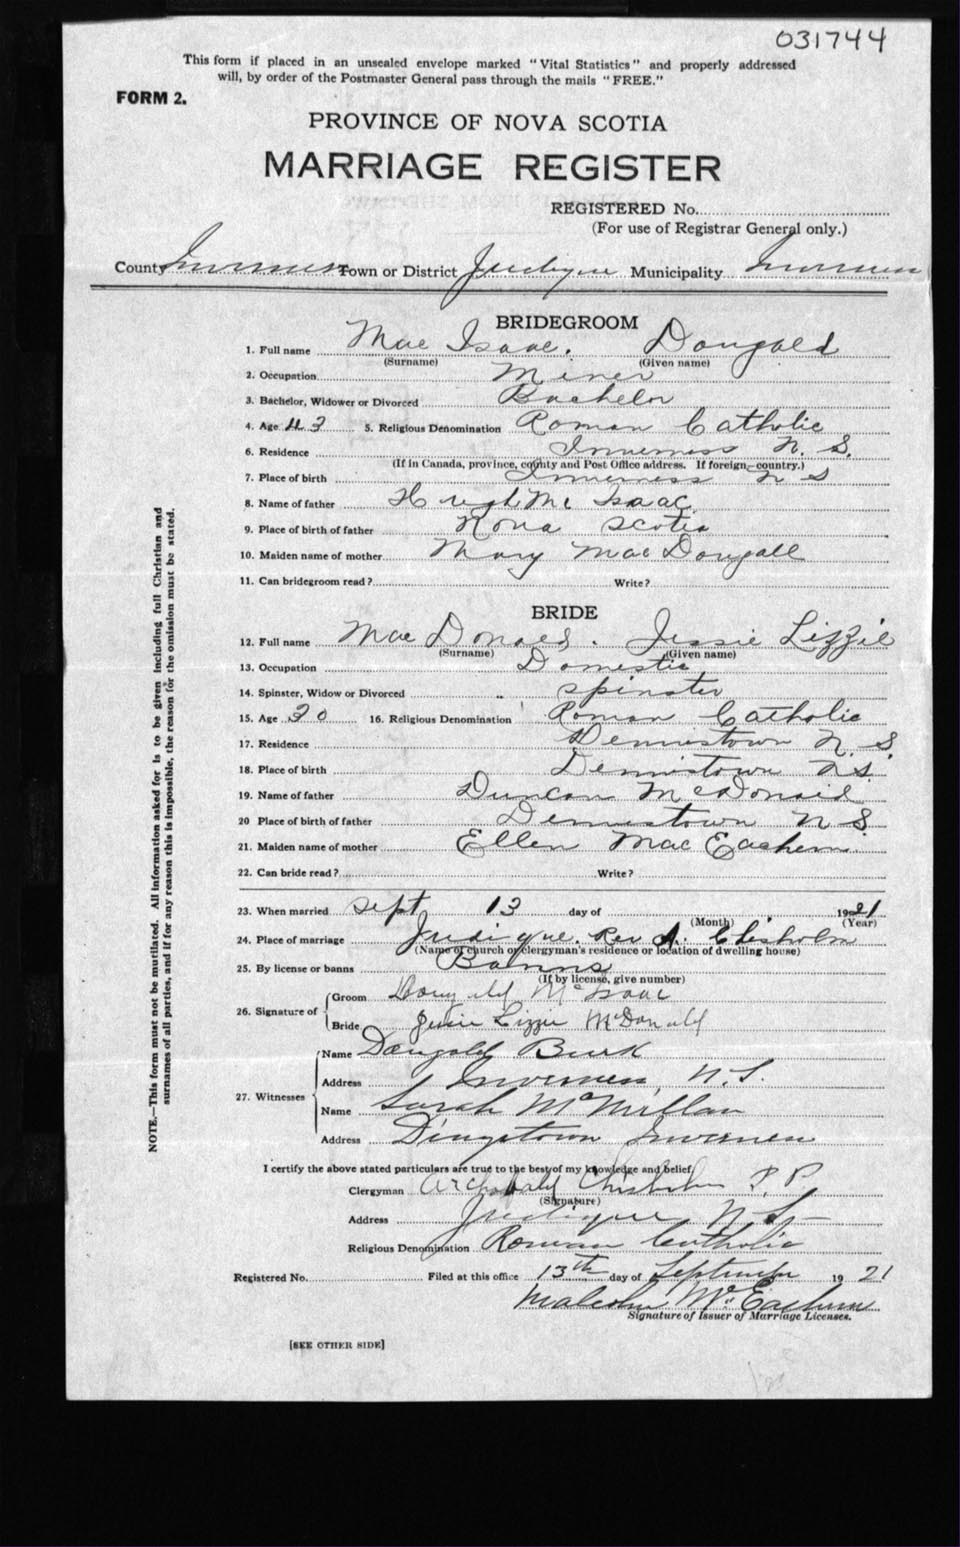 031744
This form if placed in an unsealed envelope marked "Vital Statistics" and properly addressed
will, by order of the Postmaster General pass through the mails "FREE."
FORM 2.
PROVINCE OF NOVA SCOTIA
MARRIAGE REGISTER
REGISTERED No.
(For use of Registrar General only.)
County Inverness Town or District Judique Municipality Inverness
BRIDEGROOM
1. Full name Mac Isaac. Dougald
(Surname) (Given name)
2. Occupation Miner
3. Bachelor, Widower or Divorced Bachelor
4. Age 43 5. Religious Denomination Roman Catholic
6. Residence Inverness N. S.
(If in Canada, province, county and Post Office address. If foreign—country.)
7. Place of birth Inverness N S
8. Name of father Hugh Mc Isaac
9. Place of birth of father Nova Scotia
10. Maiden name of mother Mary Mac Dougall
11. Can bridegroom read? Write?
BRIDE
12. Full name Mac Donald. Jessie Lizzie
(Surname) (Given name)
13. Occupation Domestic
14. Spinster, Widow or Divorced " spinster
15. Age 30 16. Religious Denomination Roman Catholic
17. Residence Dennistown N. S.
18. Place of birth Dennistown N.S.
19. Name of father Duncan McDonald
20 Place of birth of father Dennistown N S.
21. Maiden name of mother Ellen Mac Eachern
22. Can bride read? Write?
23. When married Sept 13 day of 1921
(Month) (Year)
24. Place of marriage Judique. Rev A. Chisholm
(Name of church or clergyman's residence or location of dwelling house)
25. By license or banns Banns
(If by license, give number)
26. Signature of Groom Dougald McIsaac
Bride Jessie Lizzie McDonald
27. Witnesses Name Dougald Burk
Address Inverness, N. S.
Name Sarah McMillan
Address Inverness
I certify the above stated particulars are true to the best of my knowledge and belief.
Clergyman Archibald Chisholm P. P.
(Signature)
Address Judique N S
Religious Denomination Roman Catholic
Registered No. Filed at this office 13th day of September 1921
Malcolm McEachern
Signature of Issuer of Marriage Licenses.
[SEE OTHER SIDE]
NOTE.—This form must not be mutilated. All information asked for is to be given including full Christian and
surnames of all parties, and if for any reason this is impossible, the reason for the omission must be stated.